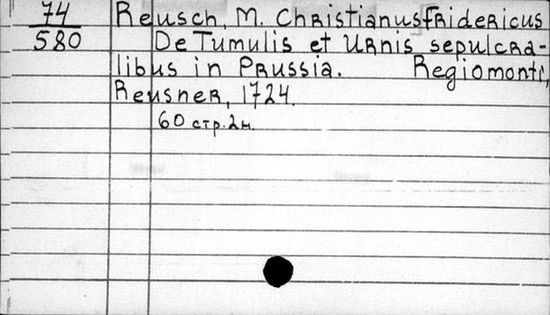 74 Reusch, M. Christianus Fridericus
580 De Tumulis et Urnis sepulcra-
libus in Prussia. Regiomonti,
Reusner, 1724.
60 стр. 2н.